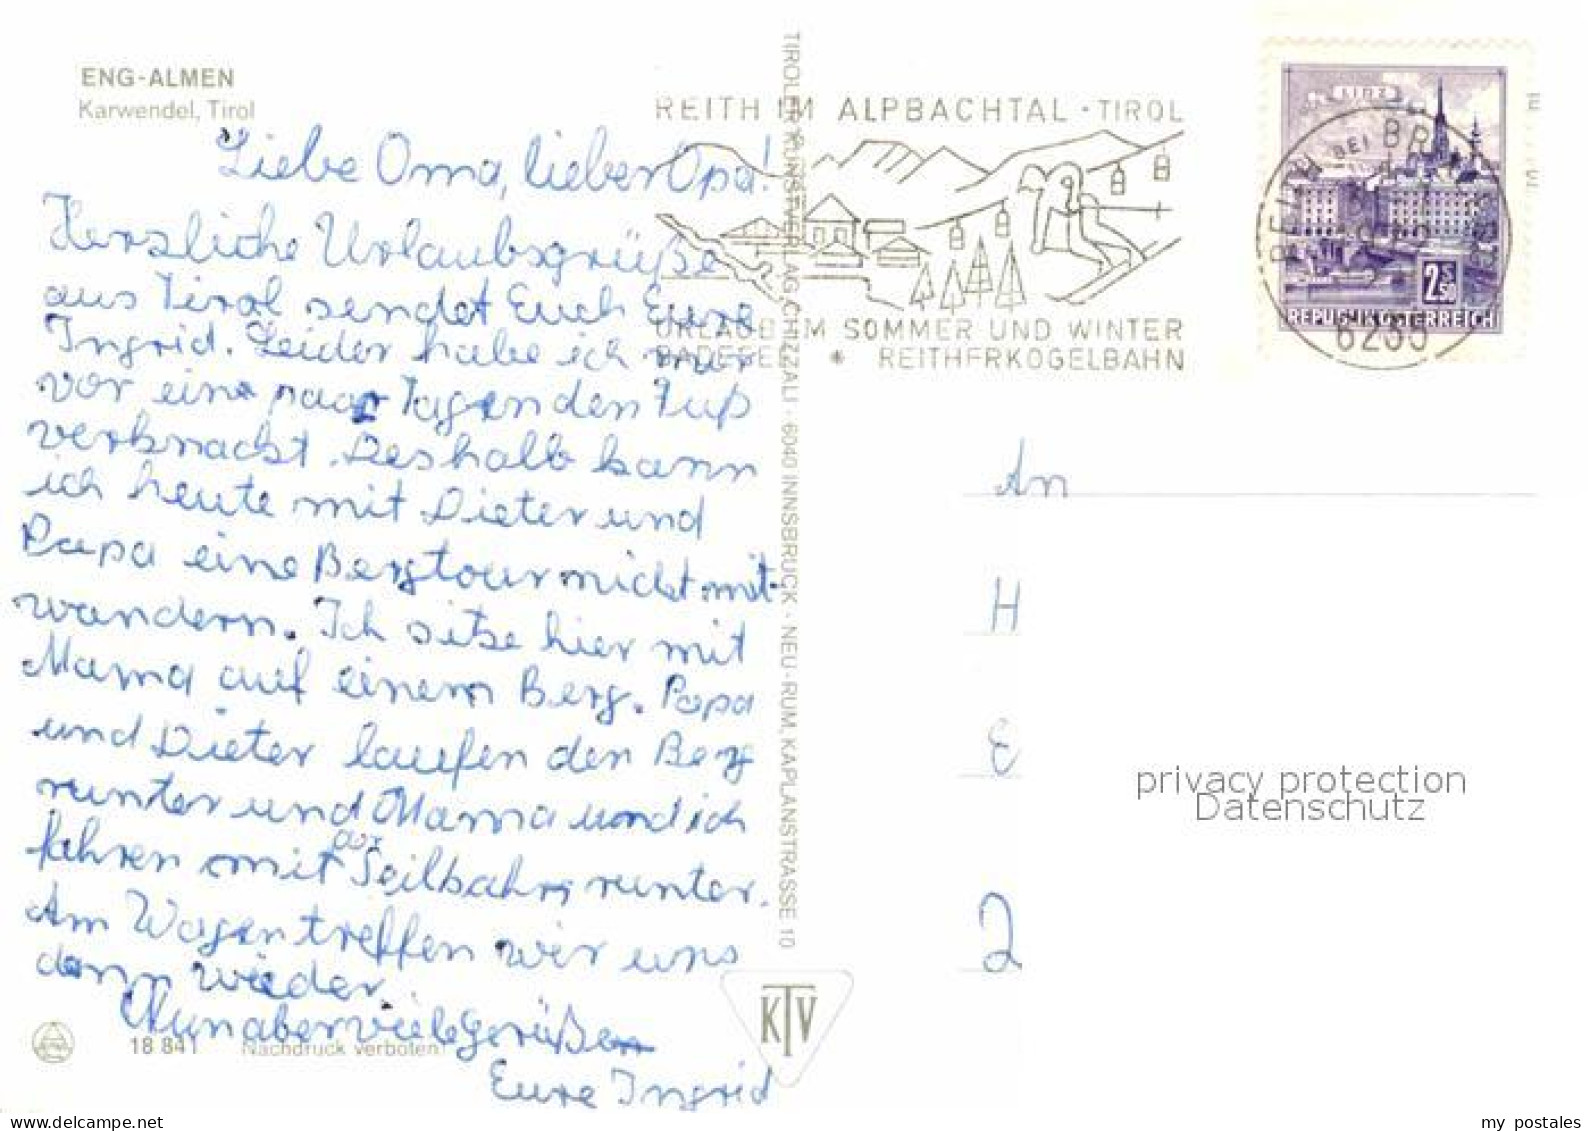 ENG-ALMEN
Karwendel, Tirol
Liebe Oma, lieber Opa!
Herzliche Urlaubsgrüße
aus Tirol sendet Euch Eure
Ingrid. Leider habe ich mir
vor eine paar Tagen den Fuß
verknackt. Deshalb kann
ich heute mit Dieter und
Papa eine Bergtour nicht mit-
wandern. Ich sitze hier mit
Mama auf einem Berg. Papa
und Dieter laufen den Berg
runter und Mama und ich
fahren mit der Seilbahn runter.
Am Wagen treffen wir uns
dann wieder.
Nun aber viele Grüße
Eure Ingrid
18 841 Nachdruck verboten!
TIROLER KUNSTVERLAG CHIZZALI · 6040 INNSBRUCK · NEU-RUM, KAPLANSTRASSE 10
KTV
REITH IM ALPBACHTAL · TIROL
URLAUB IM SOMMER UND WINTER
BADESEE * REITHERKOGELBAHN
LINZ
2.50 S
REPUBLIK ÖSTERREICH
REITH BEI BR
6235
An
H
E
2
privacy protection
Datenschutz
my postales